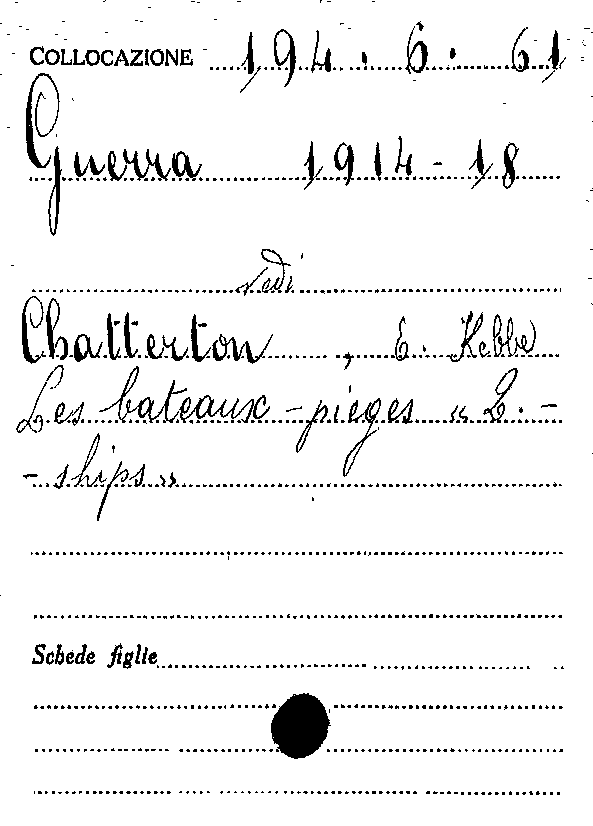 COLLOCAZIONE 194. 6. 61
Guerra 1914-18
vedi
Chatterton, E. Kebbe
Les bateaux-pièges « Q.-
-ships »
Schede figlie